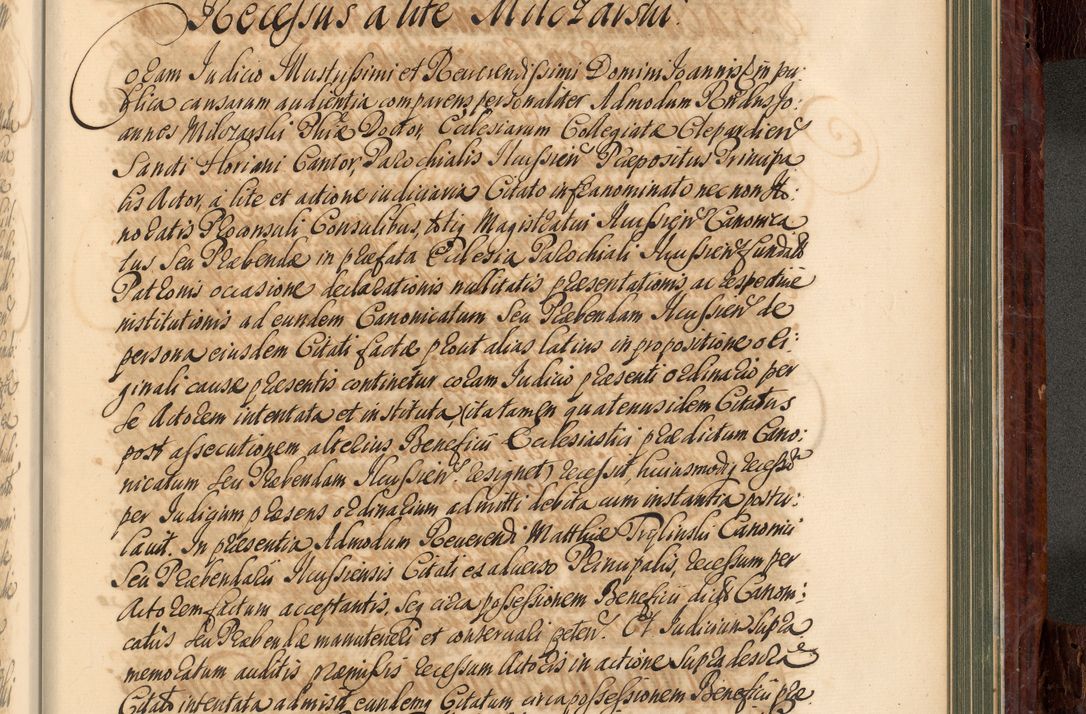 Recessus a lite Milczarski.
Coram Judicio Illustrissimi et Reverendissimi Domini Joannis in pu:
blica causarum audientia comparens personaliter Admodum Rndus Jo:
annes Milczarski Phiæ Doctor, Ecclesiarum Collegiatæ Clepardien
Sancti Floriani Cantor, Parochialis Ilkussien Præpositus Principa
lis Actor, a lite et actione iudiciaria Citato infranominato nec non Ho:
noratis Proconsuli Consulibus, totiq Magistratui Ilkussien Canonica
tus Seu Præbendæ in præfata Ecclesia Parochiali Ilkussien fundato
Patronis occasione declarationis nullitatis præsentationis ac respective
institutionis ad eundem Canonicatum Seu Præbendam Ilkussien de
persona eiusdem Citati factæ prout alias latius in propositione ori:
ginali causæ præsentis continetur coram Judicio præsenti ordinario per
se Actorem intentata et instituta, (ita tamen quatenus idem Citatus
post assecutionem alterius Beneficii Ecclesiastici prædictum Cano:
nicatum Seu Præbendam Ilkussien resignet) recessit, huiusmodi recessu
per Judicium præsens ordinarium admitti debita cum instantia postu:
lavit. In præsentia Admodum Reverendi Matthiæ Canonici
Seu Præbendarii Ilkussiensis Citati ex adverso Principalis, recessum per
Actorem factum acceptantis, Seq circa possessionem Beneficii dicti Canoni:
catus seu Præbendæ manuteneri et conservari peten. Et Judicium supra
memoratum auditis præmissis recessum Actoris in actione supradescr
Citato intentata admisit, eundemq Citatum circa possessionem Beneficii præ